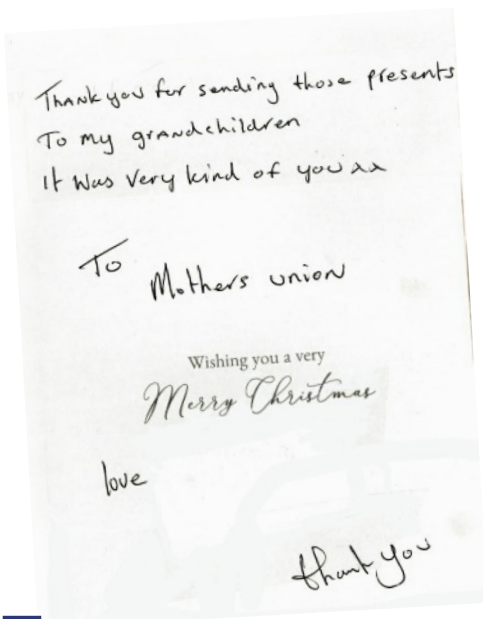 Thank you for sending those presents
To my grandchildren
It was very kind of you xx
To
Mothers union
Wishing you a very
Merry Christmas
love
thank you